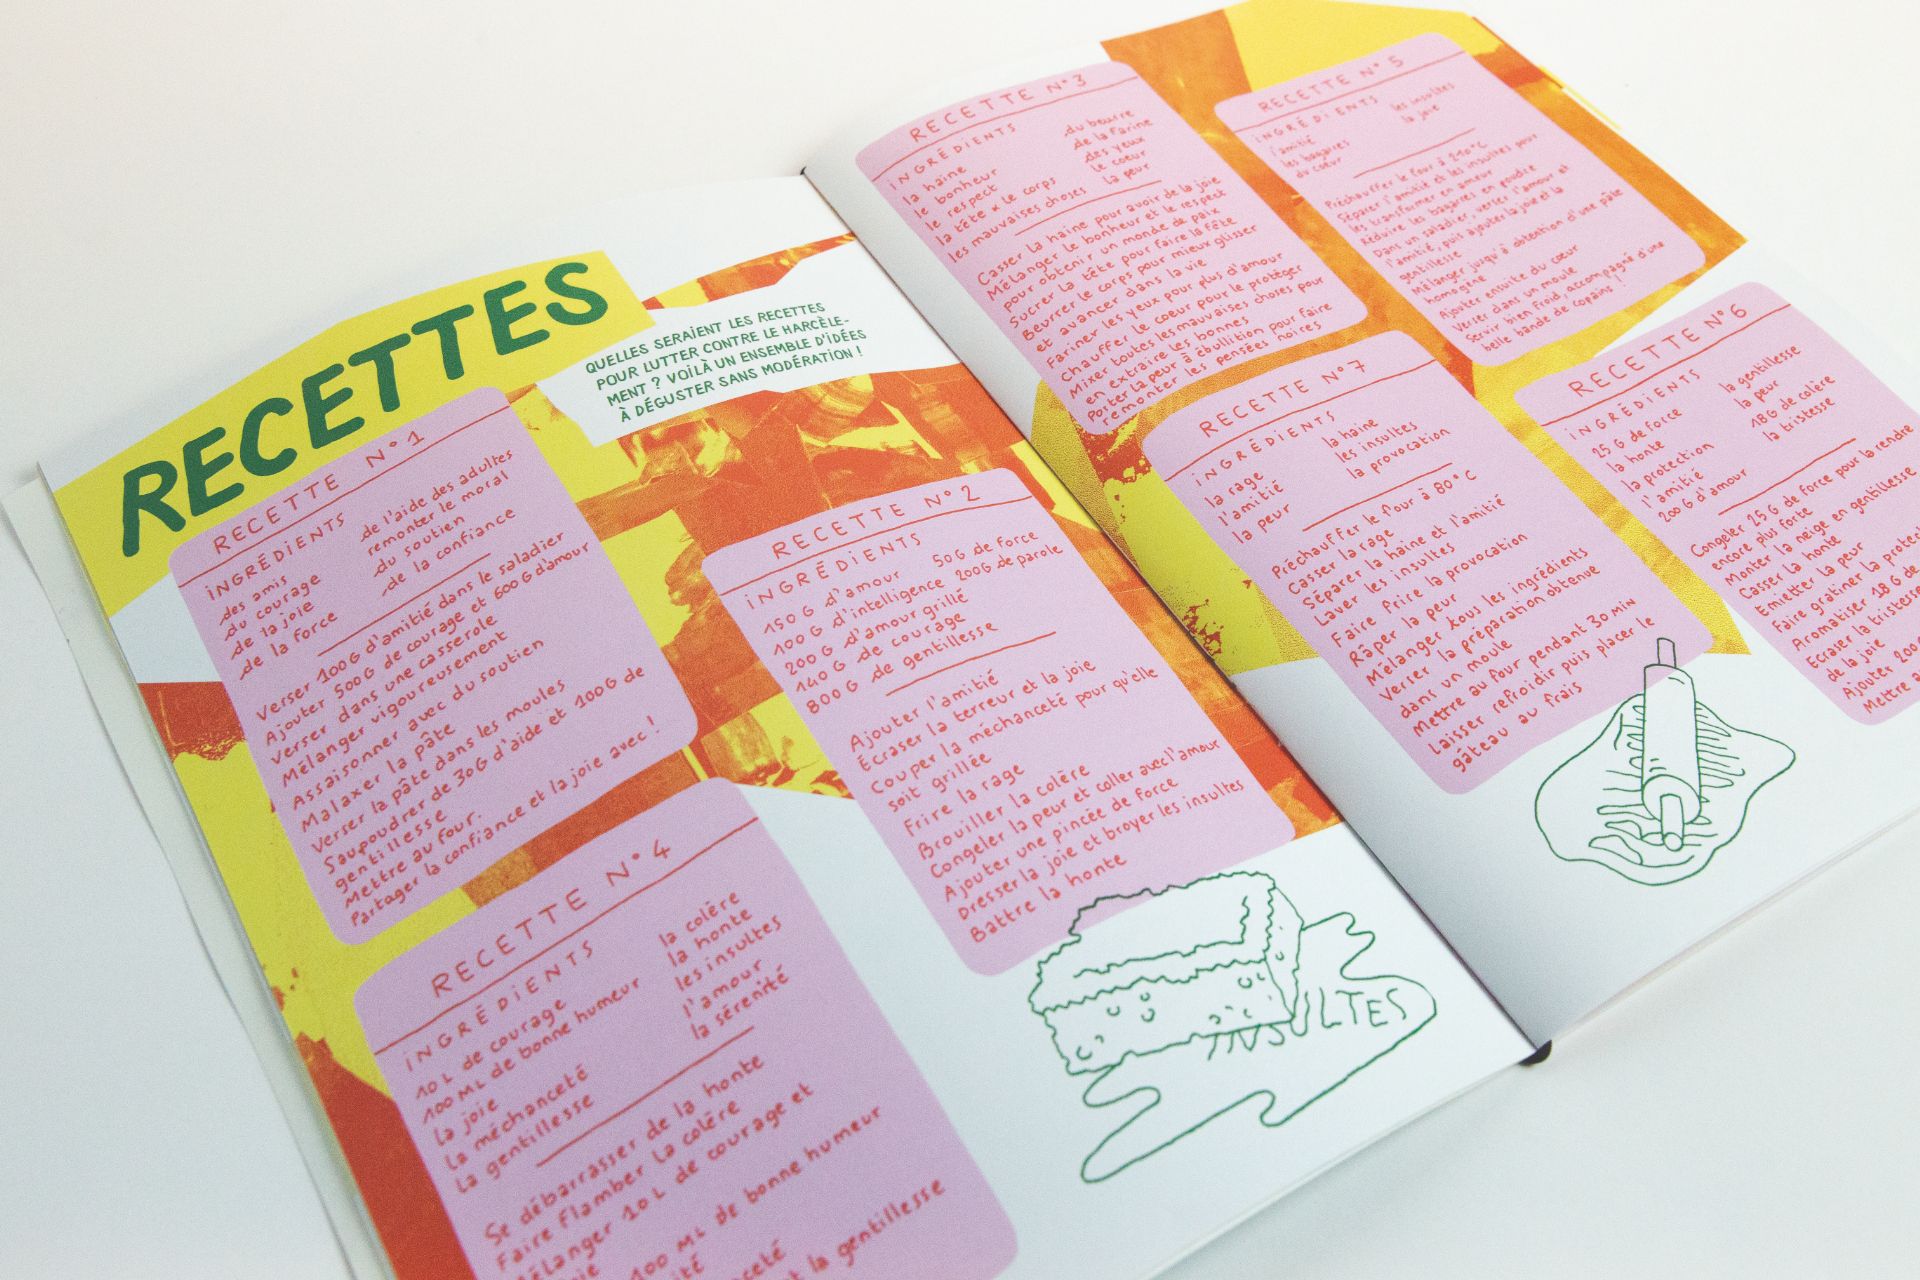 RECETTES
QUELLES SERAIENT LES RECETTES
POUR LUTTER CONTRE LE HARCÈLE-
MENT ? VOILÀ UN ENSEMBLE D'IDÉES
À DÉGUSTER SANS MODÉRATION !
RECETTE N°1
INGRÉDIENTS
des amis
du courage
de la joie
de la force
de l'aide des adultes
remonter le moral
du soutien
de la confiance
Verser 100G d'amitié dans le saladier
Ajouter 500G de courage et 600G d'amour
Verser dans une casserole
Mélanger vigoureusement
Assaisonner avec du soutien
Malaxer la pâte
Verser la pâte dans les moules
Saupoudrer de 30G d'aide et 100G de
gentillesse
Mettre au four.
Partager la confiance et la joie avec !
RECETTE N°2
INGRÉDIENTS
150 G d'amour 50G de force
100 G d'intelligence 200G de parole
200 G d'amour grillé
140 G de courage
800 G de gentillesse
Ajouter l'amitié
Écraser la terreur et la joie
Couper la méchanceté pour qu'elle
soit grillée
Frire la rage
Brouiller la colère
Congeler la peur et coller avec l'amour
Ajouter une pincée de force
Dresser la joie et broyer les insultes
Battre la honte
INSULTES
RECETTE N°4
INGRÉDIENTS
10 L de courage
100 ML de bonne humeur
la joie
la méchanceté
la gentillesse
la colère
la honte
les insultes
l'amour
la sérénité
Se débarrasser de la honte
Faire flamber la colère
Mélanger 10 L de courage et
100 ML de bonne humeur
la gentillesse
RECETTE N°3
INGRÉDIENTS
la haine
le bonheur
le respect
la tête x le corps
les mauvaises choses
du beurre
de la farine
des yeux
le coeur
la peur
Casser la haine pour avoir de la joie
Mélanger le bonheur et le respect
pour obtenir un monde de paix
Sucrer la tête pour faire la fête
Beurrer le corps pour mieux glisser
et avancer dans la vie
Fariner les yeux pour plus d'amour
Chauffer le coeur pour le protéger
Mixer toutes les mauvaises choses pour
en extraire les bonnes
Porter la peur à ébullition pour faire
remonter les pensées noires
RECETTE N°5
INGRÉDIENTS
l'amitié
les bagarres
du coeur
les insultes
la joie
Préchauffer le four à 210°C
Séparer l'amitié et les insultes pour
les transformer en amour
Réduire les bagarres en poudre
Dans un saladier, verser l'amour et
l'amitié, puis ajouter la joie et la
gentillesse
Mélanger jusqu'à obtention d'une pâte
homogène
Ajouter ensuite du coeur
Verser dans un moule
Servir bien froid, accompagné d'une
belle bande de copains !
RECETTE N°7
INGRÉDIENTS
la rage
l'amitié
la peur
la haine
les insultes
la provocation
Préchauffer le four à 80°C
Casser la rage
Séparer la haine et l'amitié
Laver les insultes
Faire frire la provocation
Râper la peur
Mélanger tous les ingrédients
Verser la préparation obtenue
dans un moule
Mettre au four pendant 30 MIN
Laisser refroidir puis placer le
gâteau au frais
RECETTE N°6
INGRÉDIENTS
25 G de force
la honte
la protection
l'amitié
200 G d'amour
la gentillesse
la peur
18G de colère
la tristesse
Congeler 25 G de force pour la rendre
encore plus forte
Monter la neige en gentillesse
Casser la honte
Emietter la peur
Faire gratiner la
Aromatiser 18 G de
Ecraser la tristesse
de la joie
Ajouter 200
Mettre